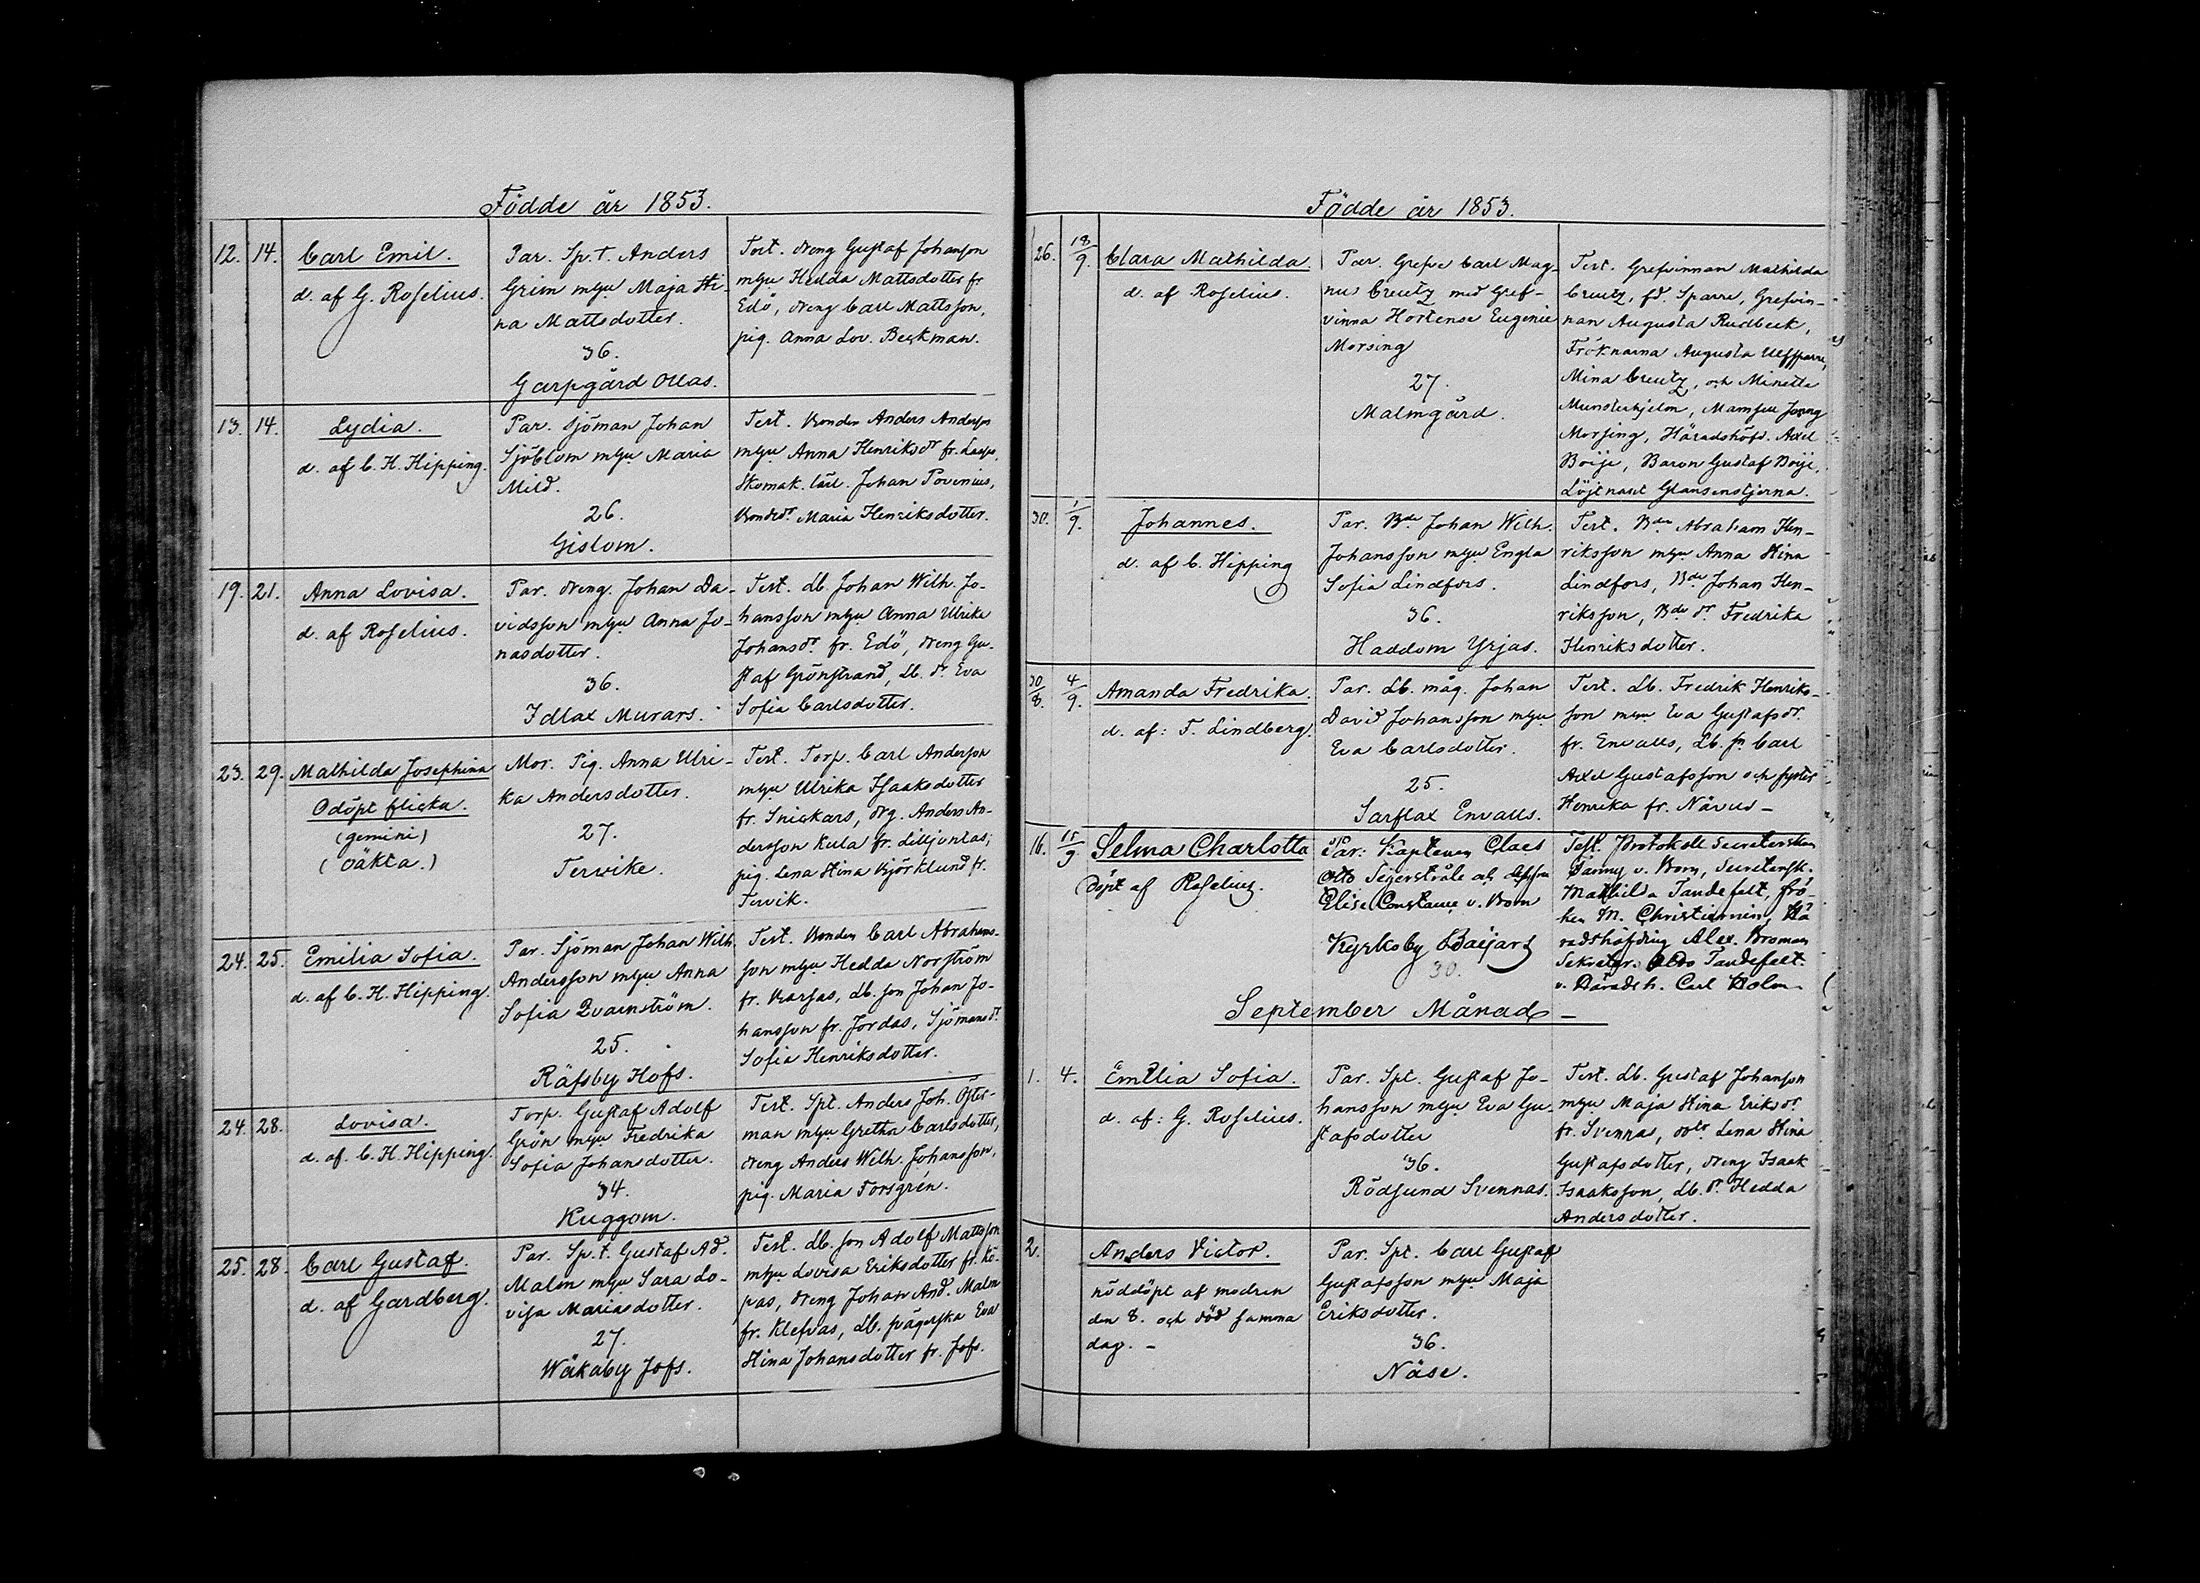 Födde år 1853.
12. 14. Carl Emil.
d. af G. Roselius.
Par. Sp.t. Anders
Grim m. hu Maja Sti-
na Mattsdotter.
36.
Garpgård Ollas.
Test. dreng Gustaf Johansson
m. hu Hedda Mattsdotter fr
Edö, dreng Carl Mattsson,
pig. Anna Lov. Beckman.
13. 14. Lydia.
d. af C. H. Hipping.
Par. Sjöman Johan
Sjöblom m. hu Maria
Mild.
26.
Gislom.
Test. Bonden Anders Andersson
m. hu Anna Henriksdr fr.
Skomak. lärl. Johan Povenius,
Bondedr Maria Henriksdotter.
19. 21. Anna Lovisa.
d. af Roselius.
Par. dreng. Johan Da-
vidsson m. hu Anna Jo-
nasdotter.
36.
Idlax Murars.
Test. Lb. Johan Wilh. Jo-
hansson m. hu Anna Ulrika
Johansdr fr. Edö, dreng Gu-
staf Grönstrand, Lb. dr Eva
Sofia Carlsdotter.
23. 29. Mathilda Josephina
Odöpt flicka.
(gemini)
(oäkta.)
Mor. Pig. Anna Ulri-
ka Andersdotter.
27.
Tervike.
Test. Torp. Carl Andersson
m. hu Ulrika Isaaksdotter
fr. Snickars, drg. Anders An-
dersson Kula fr. Lilljuntas,
pig. Lena Stina Björklund fr.
Tervik.
24. 25. Emilia Sofia.
d. af C. H. Hipping.
Par. Sjöman Johan Wilh
Andersson m. hu Anna
Sofia Qvarnström.
25.
Räfsby Hofs.
Test. Bonden Carl Abrahams-
son m. hu Hedda Norström
fr. Barsas, Lb. son Johan Jo-
hansson fr. Jordas, Sjömansdr
Sofia Henriksdotter.
24. 28. Lovisa.
d. af. C. H. Hipping.
Torp. Gustaf Adolf
Grön m. hu Fredrika
Sofia Johansdotter.
34.
Kuggom.
Test. Spt. Anders Joh. Öster-
man m. hu Gretha Carlsdotter,
dreng Anders Wilh. Johansson,
pig. Maria Forsgrén.
25. 28. Carl Gustaf.
d. af Gardberg.
Par. Sp.t. Gustaf Ad.
Malm m. hu Sara Lo-
visa Mariasdotter.
27.
Wåkaby Jofs.
Test. Lb. son Adolf Mattsson
m. hu Lovisa Eriksdotter fr. Kö-
pas, dreng Johan And. Malm
fr. Klefvas, Lb. prägerska Eva
Stina Johansdotter fr. Jofs.
Födde år 1853.
26. 18/9. Clara Mathilda.
d. af Roselius.
Par. Grefve Carl Mag-
nus Creutz med Gref-
vinna Hortense Eugenie
Morsing
27.
Malmgård.
Test. Grefvinnan Mathilda
Creutz, fd. Sparre, Grefvin-
nan Augusta Rudbeck,
Fröknarna Augusta Ulfsparre,
Mina Creutz, och Minette
Munsterhjelm, Mamsell Jenny
Morsing, Häradshöfd. Axel
Boije, Baron Gustaf Boije,
Löjtnant Glansenstjerna.
30. 1/9. Johannes.
d. af C. Hipping
Par. Bde Johan Wilh.
Johansson m. hu Engla
Sofia Lindfors.
36.
Haddom Yrjas.
Test. Bden Abraham Hen-
riksson m. hu Anna Stina
Lindfors, Bde Johan Hen-
riksson, Bde dr Fredrika
Henriksdotter.
30/8. 4/9. Amanda Fredrika.
d. af: F. Lindberg.
Par. Lb. måg. Johan
David Johansson m. hu
Eva Carlsdotter.
25.
Sarflax Envalls.
Test. Lb. Fredrik Henriks-
son m. hu Eva Gustafsdr.
fr. Envalls, Lb. sn Carl
Axel Gustafsson och syster
Henrika fr. Närvus -
16. 15/9 Selma Charlotta
döpt af Roselius.
Par: Kaptenen Claes
Otto Segerstråle och
Elise Constance v. Born
Kyrkoby Baijars
30.
Test. Protokoll Secreterskan
Fanny v. Born, Secretersk.
Mathilda Tandefelt, frö-
ken M. Christiernin, Hä
radshöfding Alex. Broman
Sekreter. Otto Tandefelt.
v. Häradsh. Carl Holm.
September Månad -
1. 4. Emilia Sofia.
d. af: G. Roselius.
Par. Spt. Gustaf Jo-
hansson m. hu Eva Gu-
stafsdotter
36.
Rödsund Svennas.
Test. Lb. Gustaf Johansson
m. hu Maja Stina Eriksdr
fr. Svennas, Lena Stina
Gustafsdotter, dreng Isaak
Isaaksson, Lb. dr. Hedda
Andersdotter.
2. Anders Victor.
nöddöpt af modren
den 8. och död samma
dag. -
Par. Spt. Carl Gustaf
Gustafsson m. hu Maja
Eriksdotter.
36.
Näse.